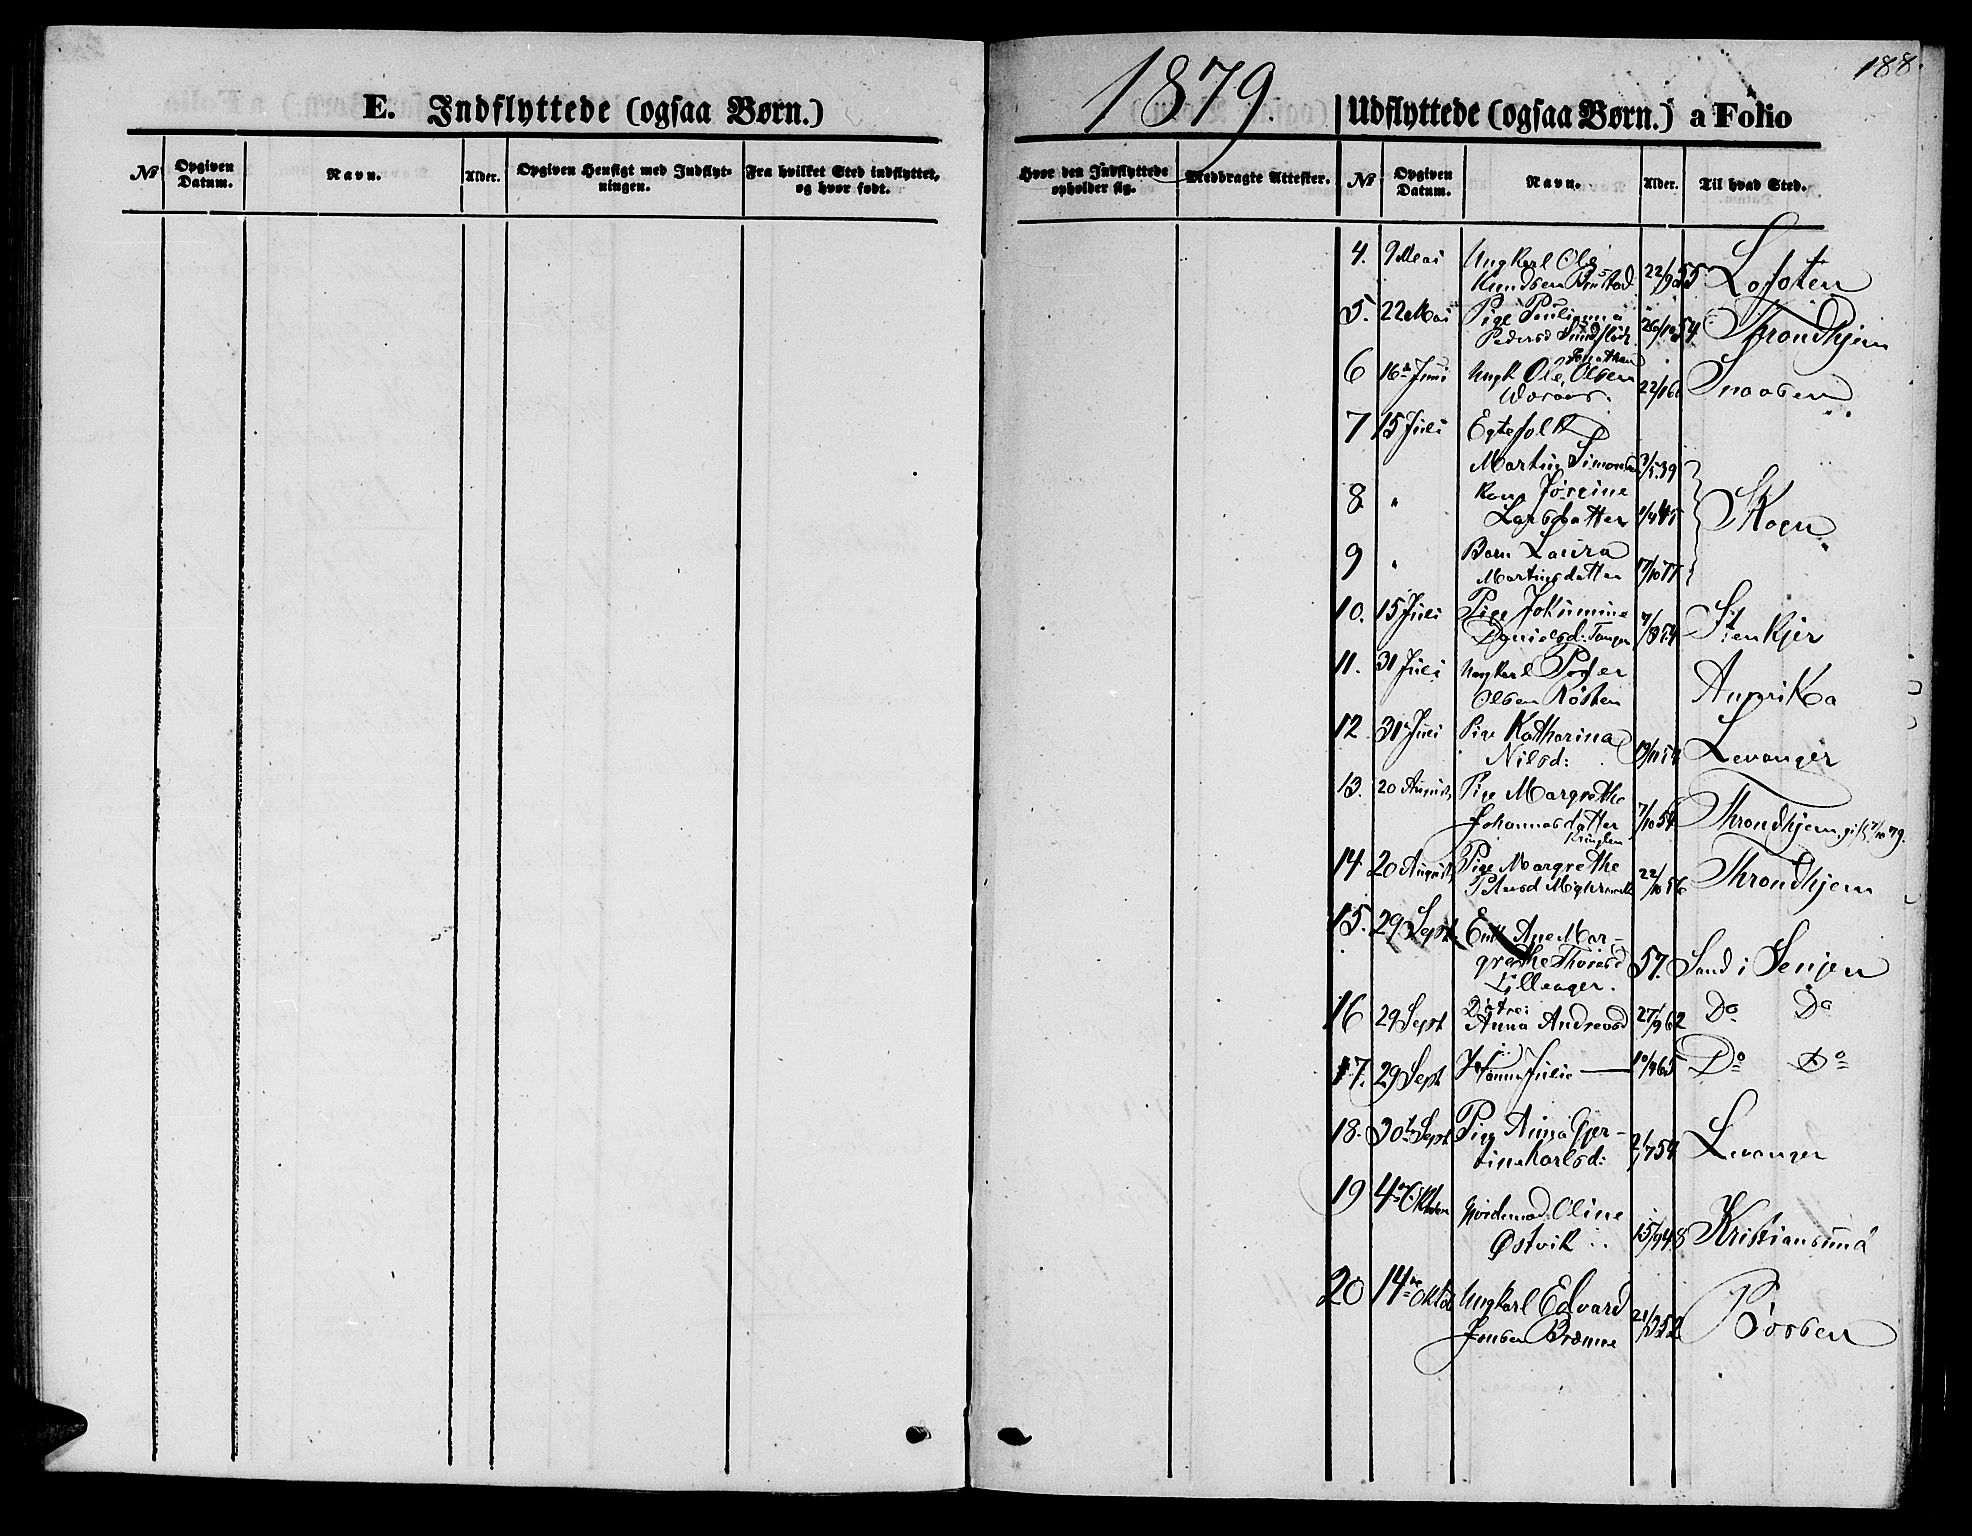 188.
E. Indflyttede (ogsaa Børn.)
1879.
Udflyttede (ogsaa Børn.) a Folio
№ Opgiven Datum. Navn. Alder. Opgiven Hensigt med Indflyt-
ningen. Fra hvilket Sted indflyttet,
og hvor født.
Hvor den Indflyttede
opholder sig. Medbragte Attester. № Opgiven
Datum. Navn. Alder. Til hvad Sted.
4. 9 Mai Ungkarl Ole
Knudsen 22/9 55 Lofoten
5. 22 Mai Pige Paulianna
Pedersd 26/12 54 Throndhjem
Jonathan
6 16de Juni Ungk Ole Olsen
22/1 60 Snaasen
7 15 Juli Egtefolk
Martin Simons 3/5 39
8 " Kone Jørgine
Larsdatter 1/4 45 Skogn
9 " Barn Laura
Martinsdatter 17/10 77
10. 15 Juli Pige Jokumine
Danielsd: 7/8 54 Stenkjer
11. 31 Juli Ungkarl Peter
Olsen Røsken Amerika
12. 31 Juli Pige Katharina
Nilsd: 19/11 54 Levanger
13. 20 August Pige Margrethe
Johannesdatter 7/10 54 Throndhjem, gift 7/10 79.
14. 20 August Pige Margrethe
Petersd 22/10 56 Throndhjem
15. 29 Sept. Enk Ane Mar-
grethe Thoresd 57. Sand i Senjen
Lilleager.
16 29 Sept Døtre:
Anna Andreasd 27/9 62 Do Do
17. 29 Sept Hanna Julie — 10/9 65 Do Do
18. 30te Sept Pige Anna Gjer-
tine Karlsd: 21/7 54 Levanger
19 4de Oktober Oline
Østvik 15/9 48 Kristiansund
20 14de Oktob Ungkarl Edvard
Jensen 21/3 52 Børsen